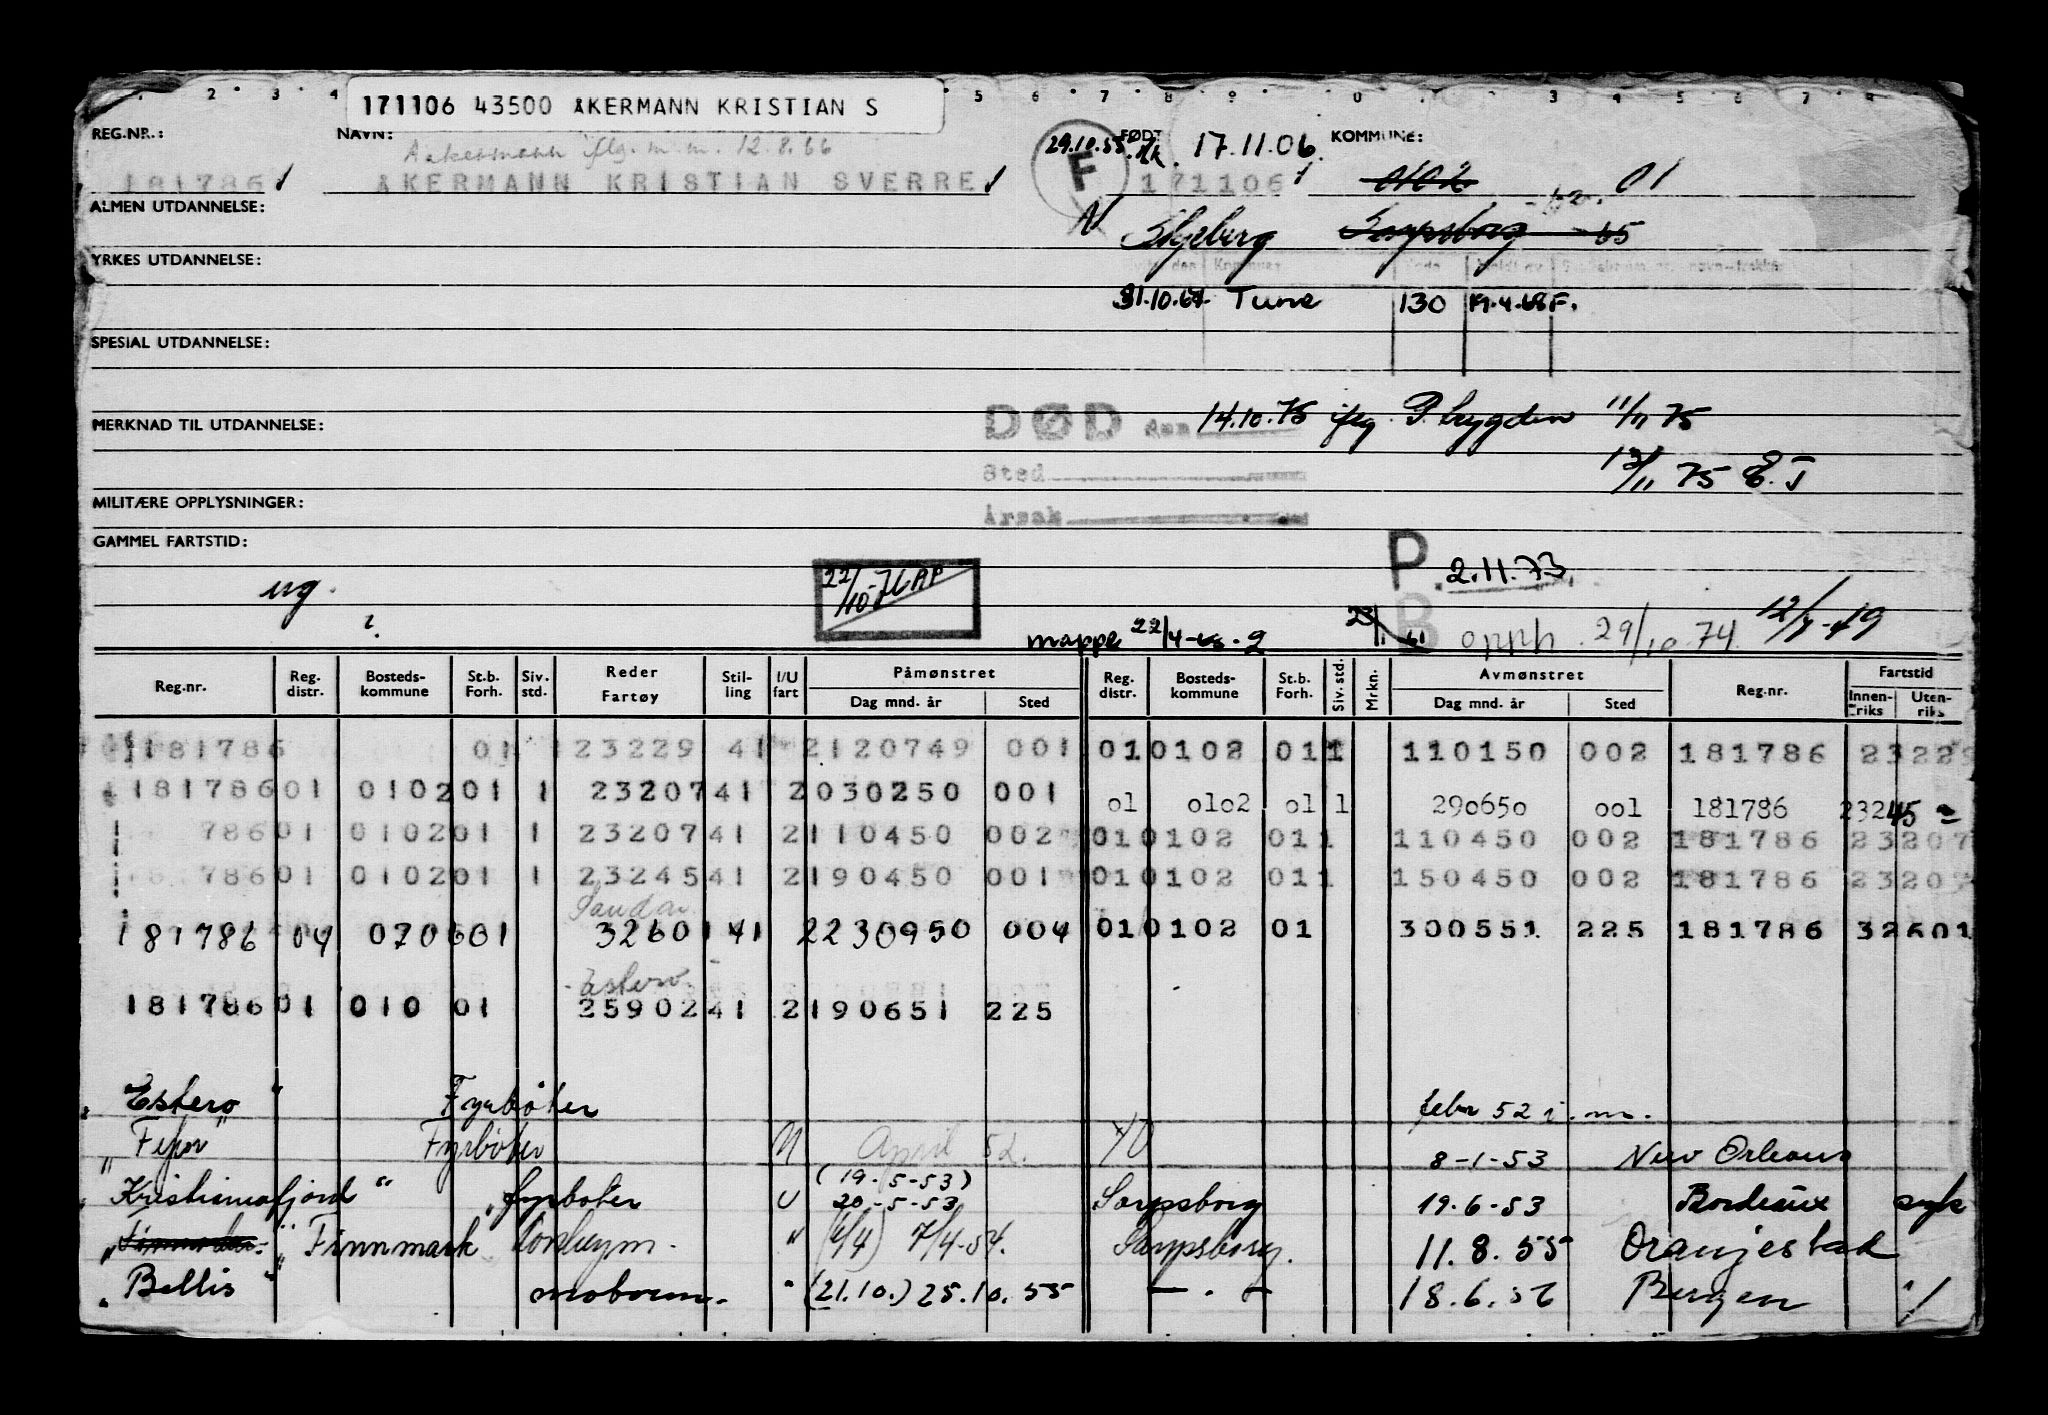 2 3 4 5 6 7 8 9 0 3 4 5 6 7
171106 43500 ÅKERMANN KRISTIAN S
REG.NR.: NAVN: FØDT 17.11.06. KOMMUNE:
Aakermann iflg. m.m. 12.8.66 29.10.55
181786 ÅKERMANN KRISTIAN SVERRE F 171106 0102 01
ALMEN UTDANNELSE:
N Skjeberg Sarpsborg 65
YRKES UTDANNELSE:
31.10.67 Tune 130 19.4.68 F.
SPESIAL UTDANNELSE:
DØD den 14.10.75 iflg. P. trygden 11/11 75
MERKNAD TIL UTDANNELSE:
Sted 13/11 75 E.J
MILITÆRE OPPLYSNINGER:
Årsak
GAMMEL FARTSTID:
22/10-76 AP P. 2.11.73.
ug. B
mappe 22/4-68-9 23/1 61 opph. 29/10 74 12/7-49
Reg.nr. Reg. distr. Bosteds- kommune St.b. Forh. Siv. std. Reder Fartøy Stil- ling I/U fart Påmønstret Dag mnd. år Sted Reg. distr. Bosteds- kommune St.b. Forh. Siv. std. Mrkn. Avmønstret Dag mnd. år Sted Reg.nr. Fartstid Innen- riks Uten- riks
181786 01 23229 41 2 120749 001 01 0102 01 1 110150 002 181786 23229
181786 01 0102 01 1 23207 41 2 030250 001 01 0102 01 1 290650 001 181786 23245
786 01 0102 01 1 23207 41 2 110450 002 01 0102 01 1 110450 002 181786 23207
786 01 0102 01 1 23245 41 2 190450 001 01 0102 01 1 150450 002 181786 23207
Sandar
181786 04 0706 01 32601 41 2 230950 004 01 0102 01 300551 225 181786 32601
Estero
181786 01 010 01 25902 41 2 190651 225
" Estero " Fyrbøter febr 52 i. m.
" Fejor " Fyrbøter U April 52. 8-1-53 New Orleans
(19-5-53)
" Kristianiafjord " fyrbøter U 20-5-53 Sarpsborg 19.6-53 Bordeaux syk
" Finnmark donkeym. " (6/4) 7/4-54. Sarpsborg. 11.8.55 Oranjestad
" Bellis " motorm. " (21.10.) 25.10.55 — " — 18.6.56 Bergen